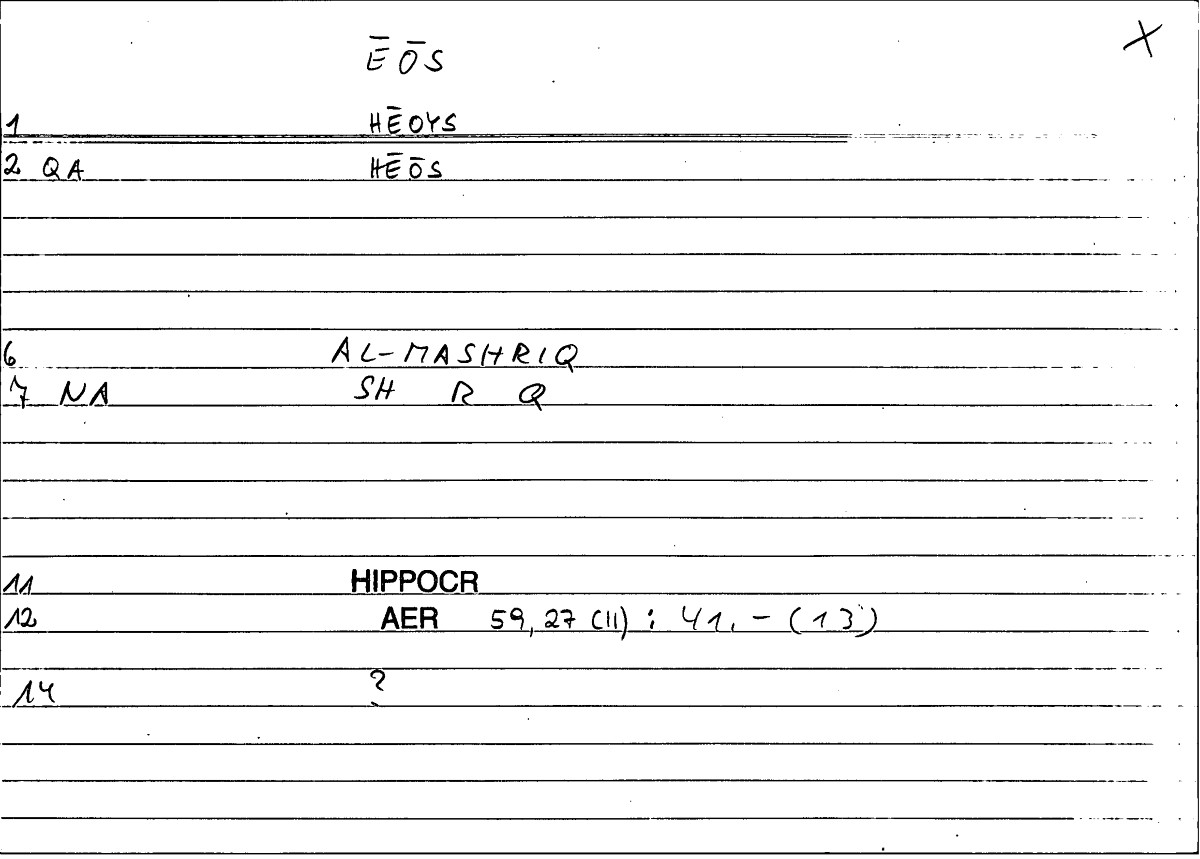 ĒŌS X
1 HĒOYS
2 QA HĒŌS
6 AL-MASHRIQ
7 NA SH R Q
11 HIPPOCR
12 AER 59,27 (11) : 41. - (13)
14 ?